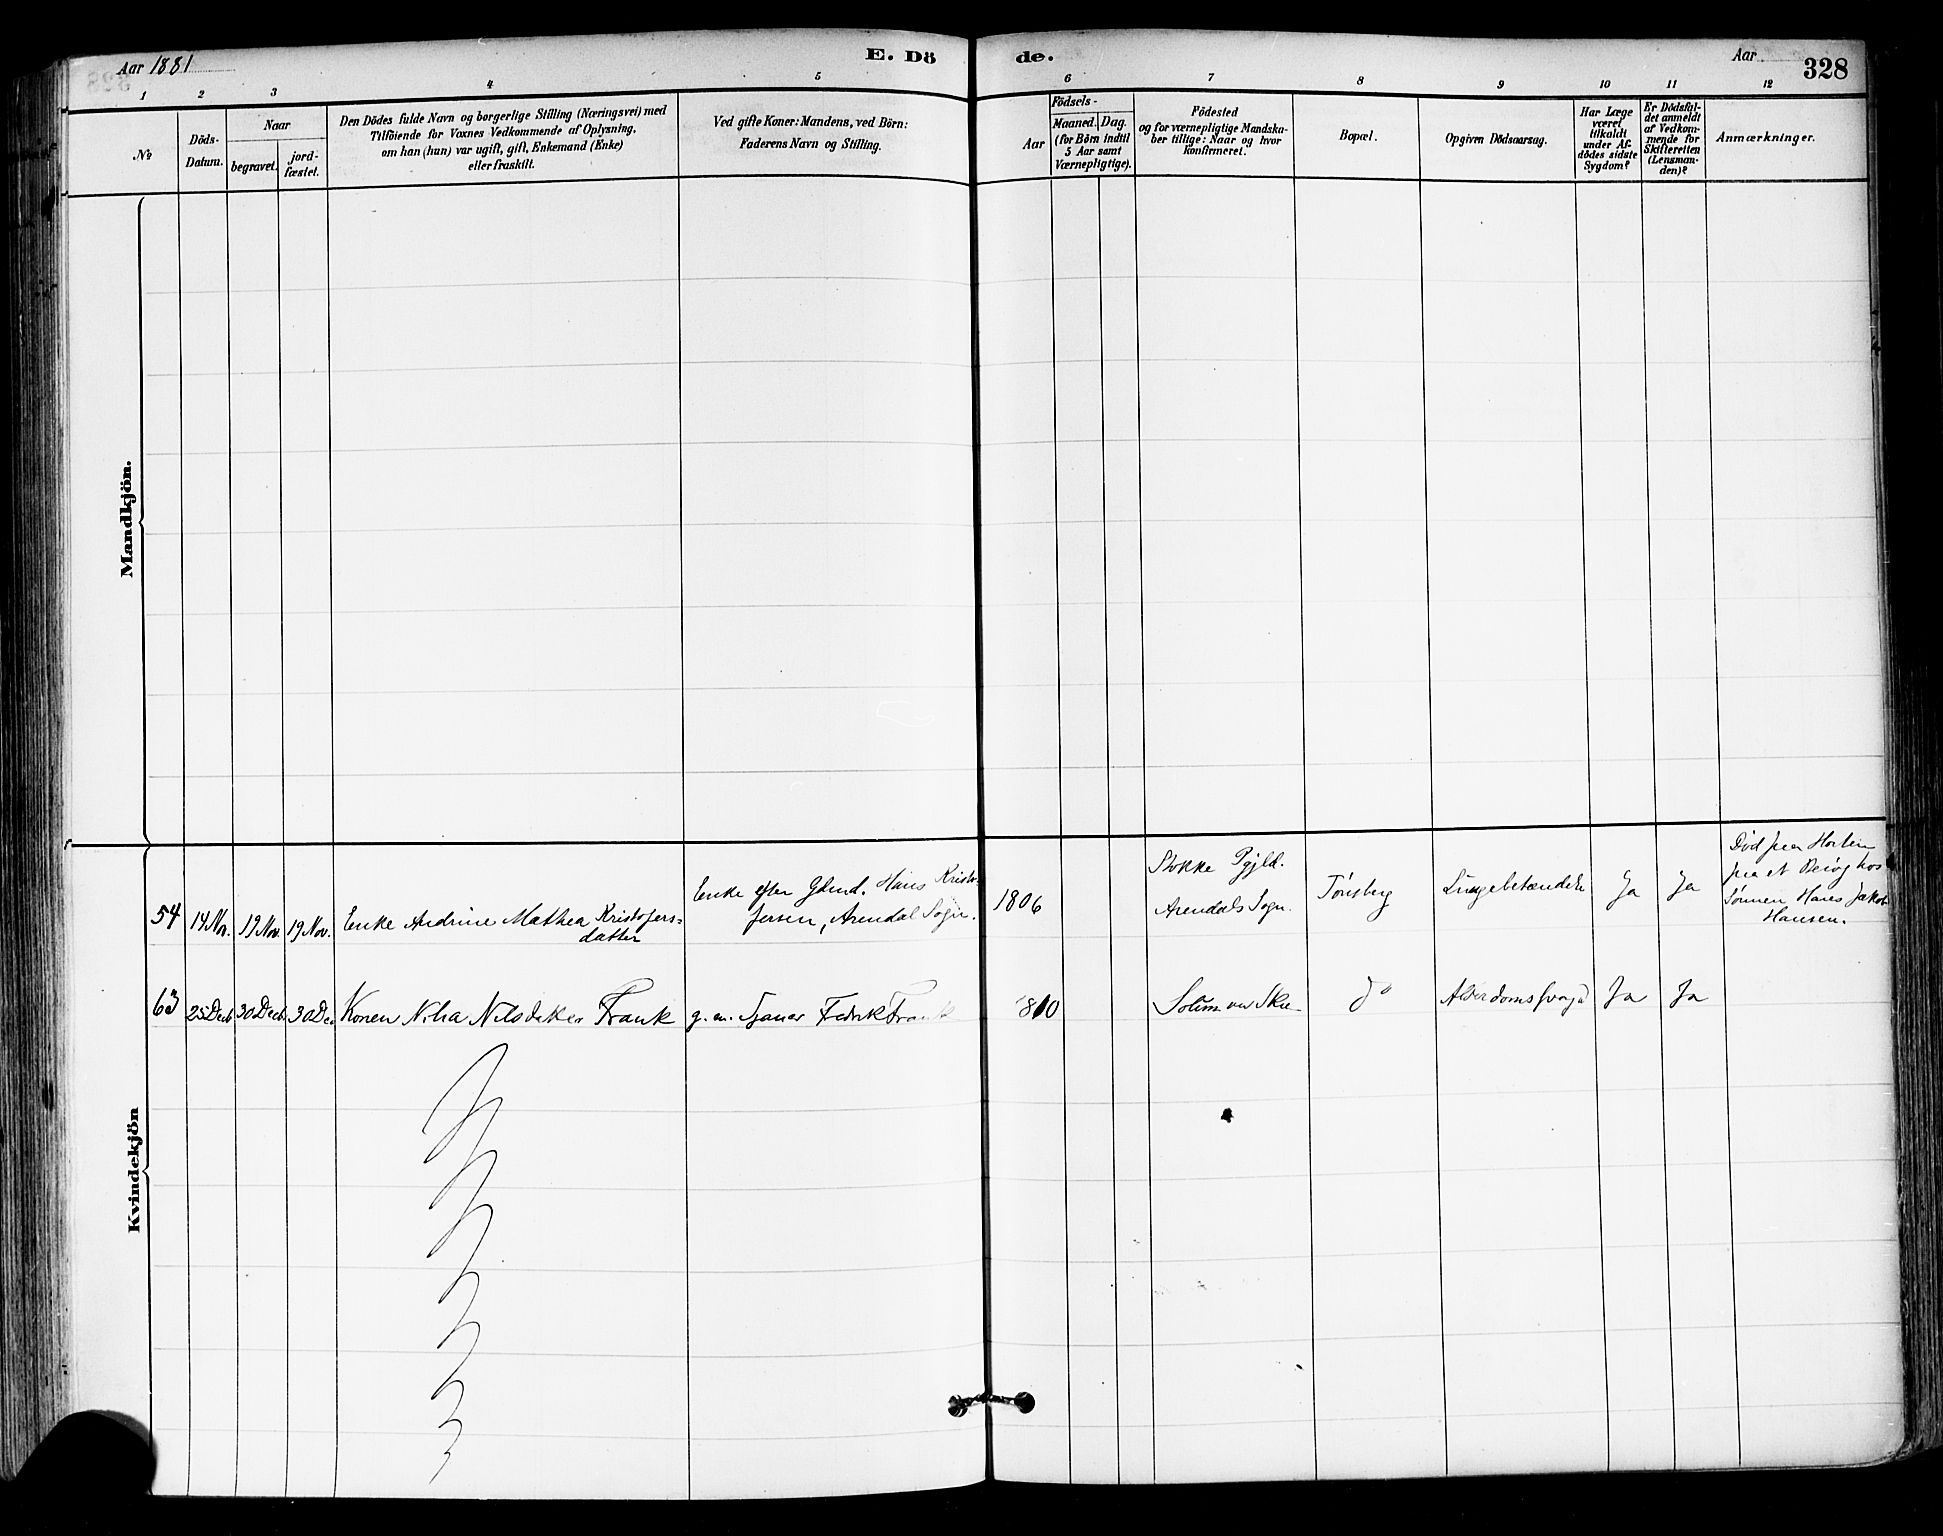 Aar 1881
E. Dö
de.
Aar
328
1 2 3 4 5 6 7 8 9 10 11 12
№
Döds-
Datum.
Naar
begravet.
jord-
fæstet.
Den Dödes fulde Navn og borgerlige Stilling (Næringsvei) med
Tilföiende for Voxnes Vedkommende af Oplysning,
om han (hun) var ugift, gift, Enkemand (Enke)
eller fraskilt.
Ved gifte Koner: Mandens, ved Börn:
Faderens Navn og Stilling.
Födsels-
Aar
Maaned. Dag.
(for Börn indtil
5 Aar samt
Værnepligtige).
Födested
og for værnepligtige Mandska-
ber tillige: Naar og hvor
konfirmeret.
Bopæl.
Opgiven Dödsaarsag.
Har Læge
været
tilkaldt
under Af-
dödes sidste
Sygdom?
Er Dödsfal-
det anmeldt
af Vedkom-
mende for
Skifteretten
(Lensman-
den)?
Anmærkninger.
Mandkjön.
Kvindekjön
54
14 Nov.
19 Nov.
19 Nov.
Enke Andrine Mathea Kristofers-
datter
Enke efter Gdmd. Hans Kristo-
fersen, Arendal Sogn.
1806
Stokke Pgjld.
Arendals Sogn.
Tønsberg
Lungebetændelse
Ja
Ja
Død paa Horten
paa et Besøg hos
Sønnen Hans Jakob
Hansen.
63
25 Decb
30 Decb
30 Dec
Konen
Nilsdatter Frank
g. m.
Fedrik Frank
1810
Solum
do
Alderdomssvaghed
Ja
Ja